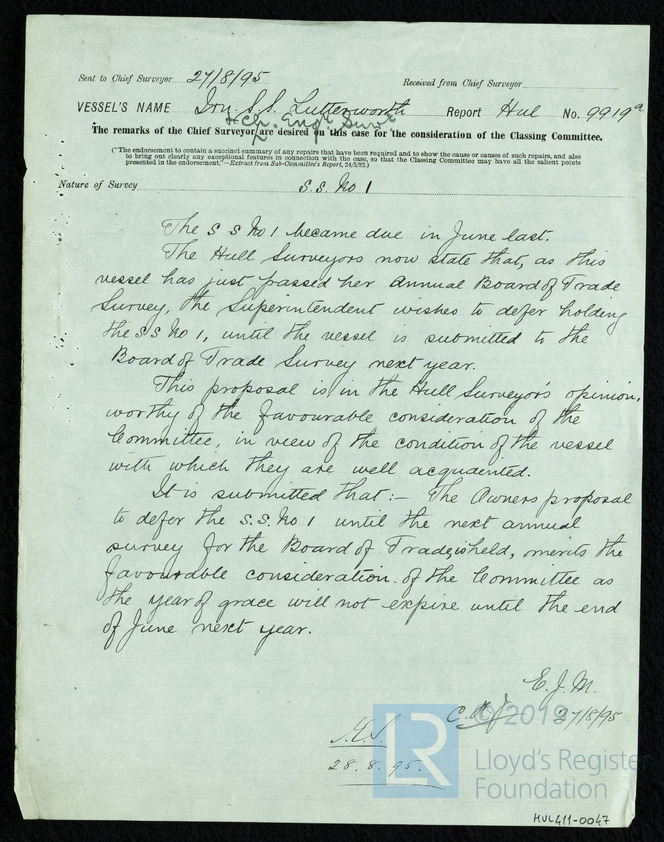 Sent to Chief Surveyor 27/8/95 Received from Chief Surveyor
VESSEL'S NAME Iron S.S. Lutterworth Report Hul No. 9919a
& Ch. Engr. Survr
The remarks of the Chief Surveyor are desired on this case for the consideration of the Classing Committee.
("The endorsement to contain a succinct summary of any repairs that have been required and to show the cause or causes of such repairs, and also
to bring out clearly any exceptional features in connection with the case, so that the Classing Committee may have all the salient points
presented in the endorsement."—Extract from Sub-Committee's Report, 24/5/92.)
Nature of Survey S.S. No 1
The S S No 1 became due in June last.
The Hull Surveyors now state that, as this
vessel has just passed her Annual Board of Trade
Survey, the Superintendent wishes to defer holding
the S S No 1, until the vessel is submitted to the
Board of Trade Survey next year.
This proposal is, in the Hull Surveyor's opinion,
worthy of the favourable consideration of the
Committee, in view of the condition of the vessel
with which they are well acquainted.
It is submitted that :— The Owners proposal
to defer the S.S. No 1 until the next annual
survey for the Board of Trade is held, merits the
favourable consideration of the Committee as
the year of grace will not expire until the end
of June next year.
E.J.M.
27/8/95
28.8.95.
© 2019
LR
Lloyd's Register
Foundation
HUL411-0047